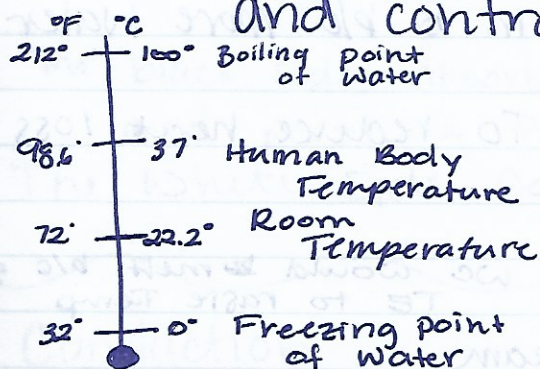 and contro
°F °C
212° 100° Boiling point
of water
98.6° 37° Human Body
Temperature
72° 22.2° Room
Temperature
32° 0° Freezing point
of water